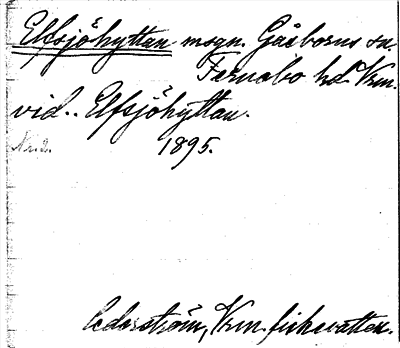 Elfsjöhyttan msgn. Gåsborns sn.
Fernebo hd. Vrm.
vid. Elfsjöhyttan.
1895.
Cederström, Vrm. fiskevatten.